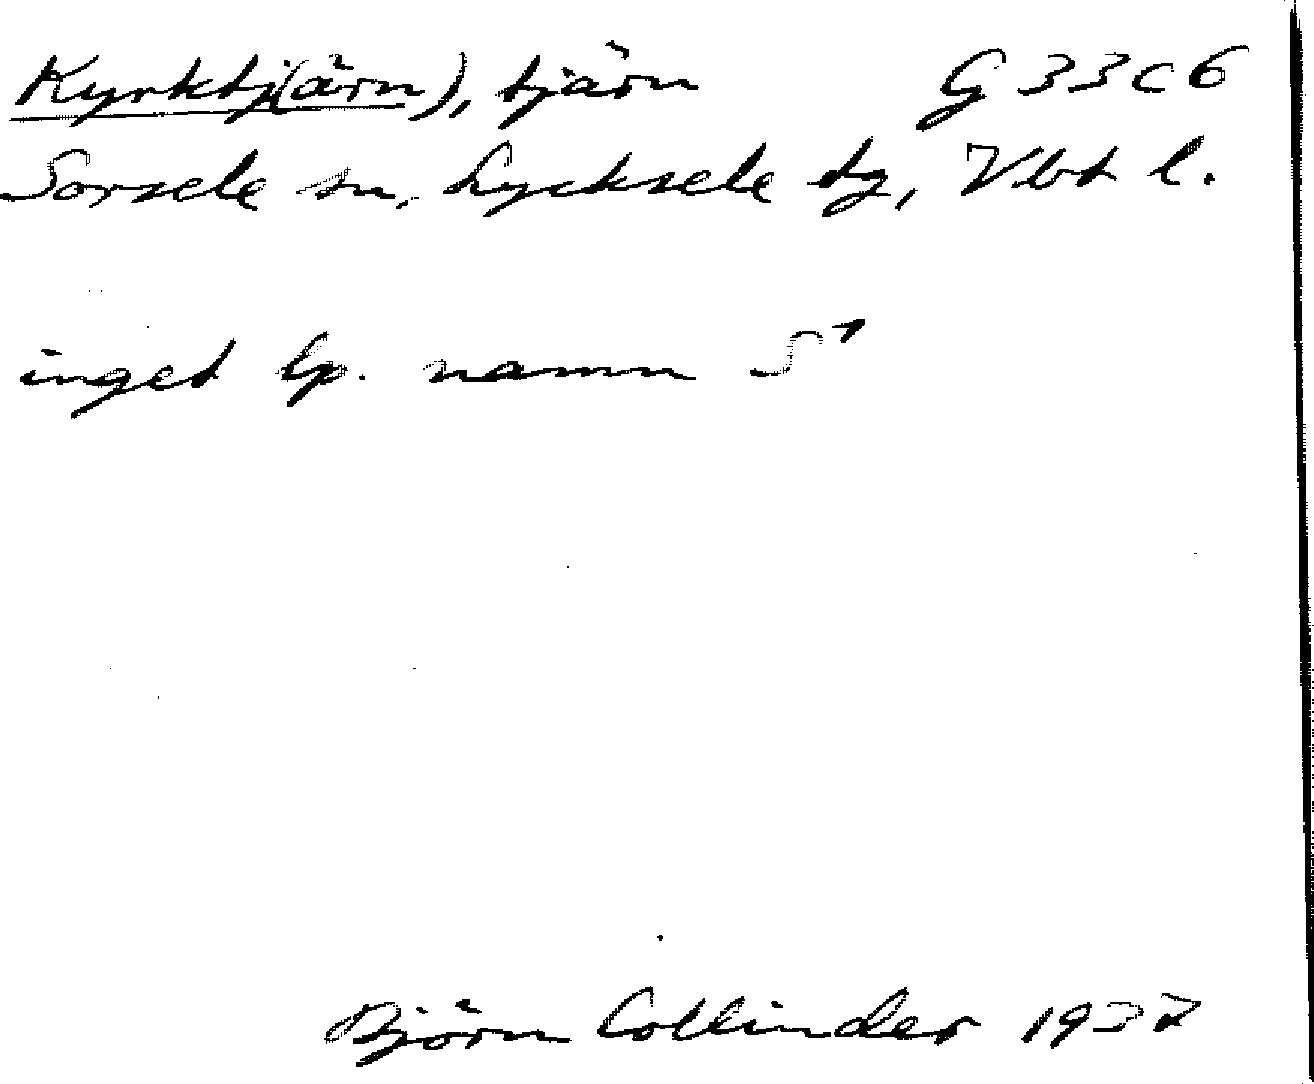 Kyrktj(ärn), tjärn G 33 c 6
Sorsele sn, Lycksele tg, Vbt l.
inget lp. namn S¹
Björn Collinder 1937